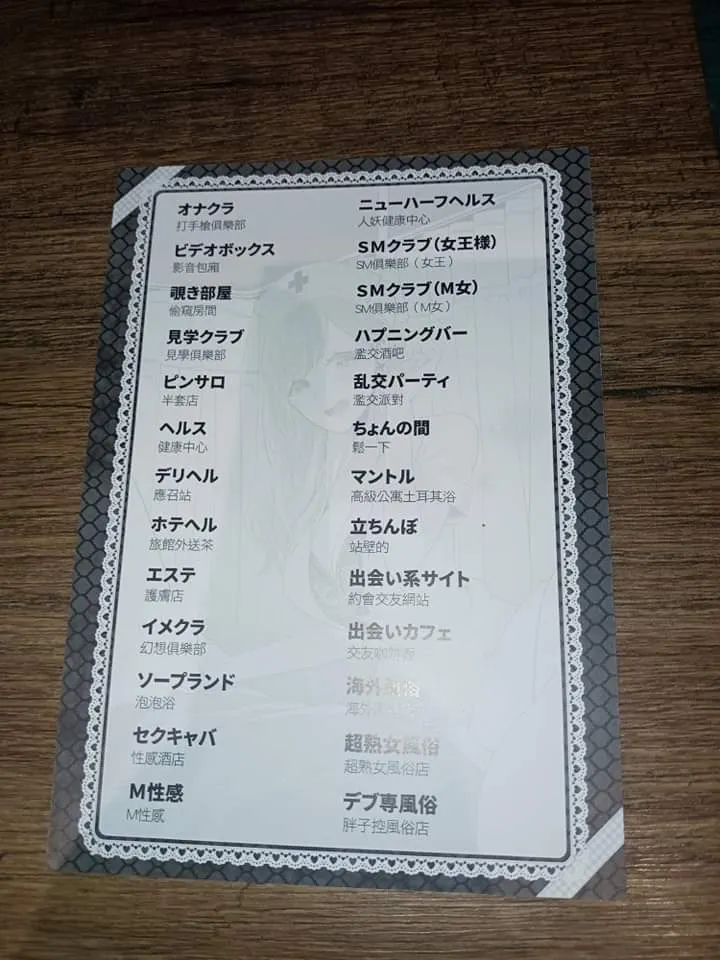 オナクラ
打手槍俱樂部
ビデオボックス
影音包廂
覗き部屋
偷窺房間
見学クラブ
見學俱樂部
ピンサロ
半套店
ヘルス
健康中心
デリヘル
應召站
ホテヘル
旅館外送茶
エステ
護膚店
イメクラ
幻想俱樂部
ソープランド
泡泡浴
セクキャバ
性感酒店
M性感
M性感
ニューハーフヘルス
人妖健康中心
SMクラブ(女王様)
SM俱樂部(女王)
SMクラブ(M女)
SM俱樂部(M女)
ハプニングバー
濫交酒吧
乱交パーティ
濫交派對
ちょんの間
鬆一下
マントル
高級公寓土耳其浴
立ちんぼ
站壁的
出会い系サイト
約會交友網站
出会いカフェ
交友咖啡
海外風俗
海外
超熟女風俗
超熟女風俗店
デブ専風俗
胖子控風俗店